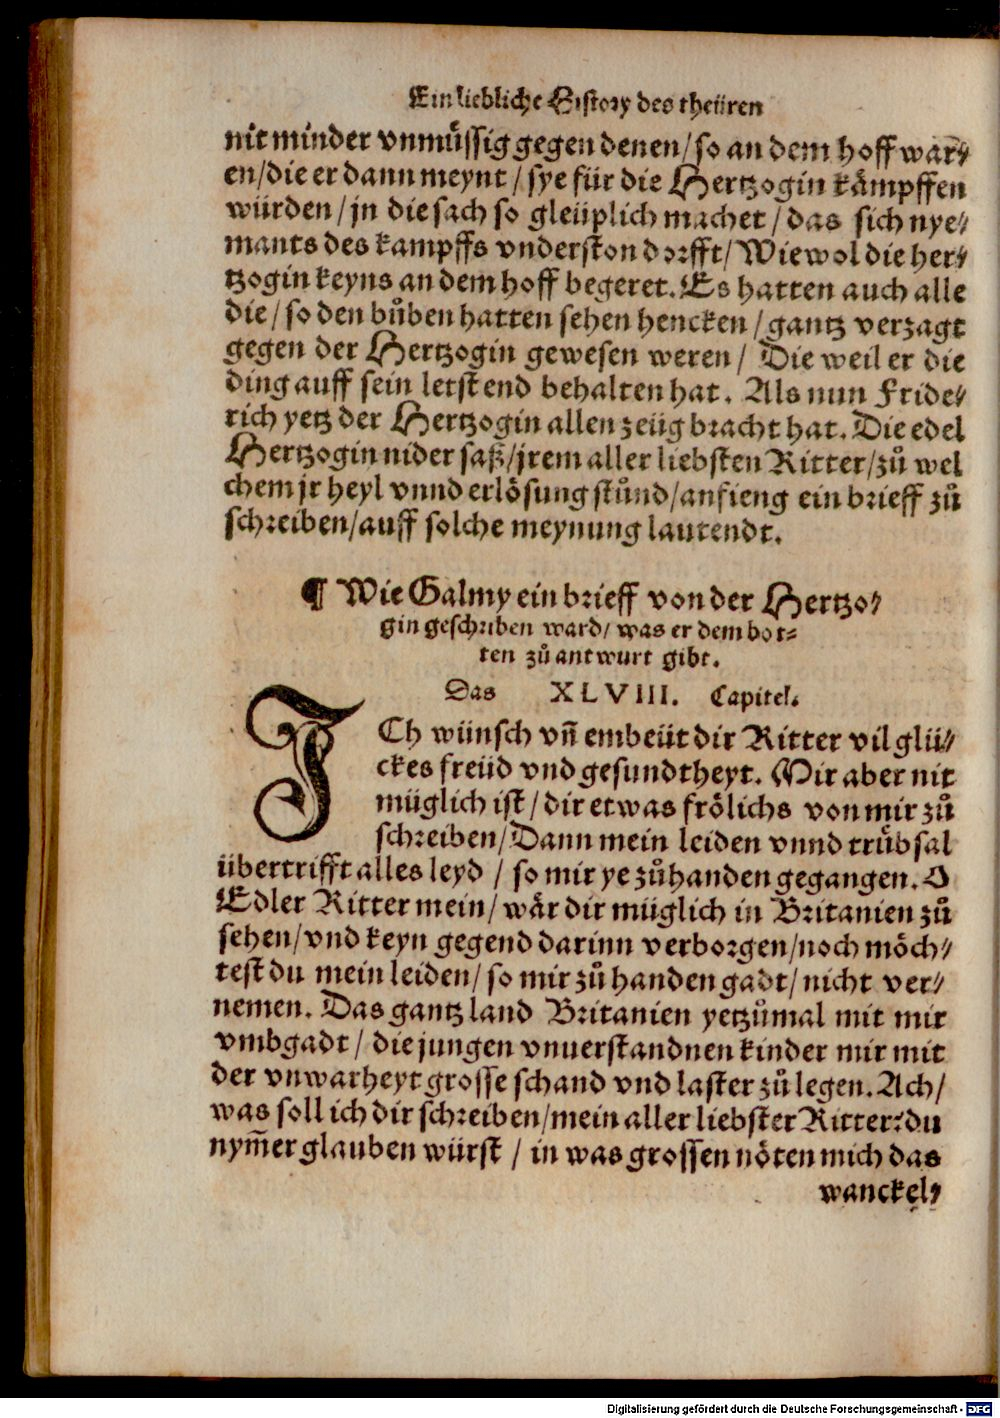 Ein liebliche History des theüren
nit minder vnmüssig gegen denen/ so an dem hoff war⸗
en/ die er dann meynt/ sye für die Hertzogin kämpffen
würden/ jn die sach so gleüplich machet/ das sich nye⸗
mants des kampffs vnderston dorfft/ Wiewol die her⸗
tzogin keyns an dem hoff begeret. Es hatten auch alle
die/ so den bůben hatten sehen hencken/ gantz verzagt
gegen der Hertzogin gewesen weren/ Die weil er die
ding auff sein letst end behalten hat. Als nun Fride⸗
rich yetz der Hertzogin allen zeüg bracht hat. Die edel
Hertzogin nider saß/ jrem aller liebsten Ritter/ zů wel
chem jr heyl vnnd erlösung stůnd/ anfieng ein brieff zů
schreiben/ auff solche meynung lautendt.
¶ Wie Galmy ein brieff von der Hertzo⸗
gin geschriben ward/ was er dem bot⸗
ten zů antwurt gibt.
Das XLVIII. Capitel.
ICh wünsch vñ embeüt dir Ritter vil glü⸗
ckes freüd vnd gesundtheyt. Mir aber nit
müglich ist/ dir etwas frölichs von mir zů
schreiben/ Dann mein leiden vnnd trübsal
übertrifft alles leyd / so mir ye zůhanden gegangen. O
Edler Ritter mein/ wär dir müglich in Britanien zů
sehen/ vnd keyn gegend darinn verborgen/ noch möch⸗
test du mein leiden/ so mir zů handen gadt/ nicht ver⸗
nemen. Das gantz land Britanien yetzůmal mit mir
vmbgadt / die jungen vnuerstandnen kinder mir mit
der vnwarheyt grosse schand vnd laster zů legen. Ach/
was soll ich dir schreiben/ mein aller liebster Ritter? du
nym̄er glauben würst / in was grossen nöten mich das
wanckel⸗
Digitalisierung gefördert durch die Deutsche Forschungsgemeinschaft - DFG